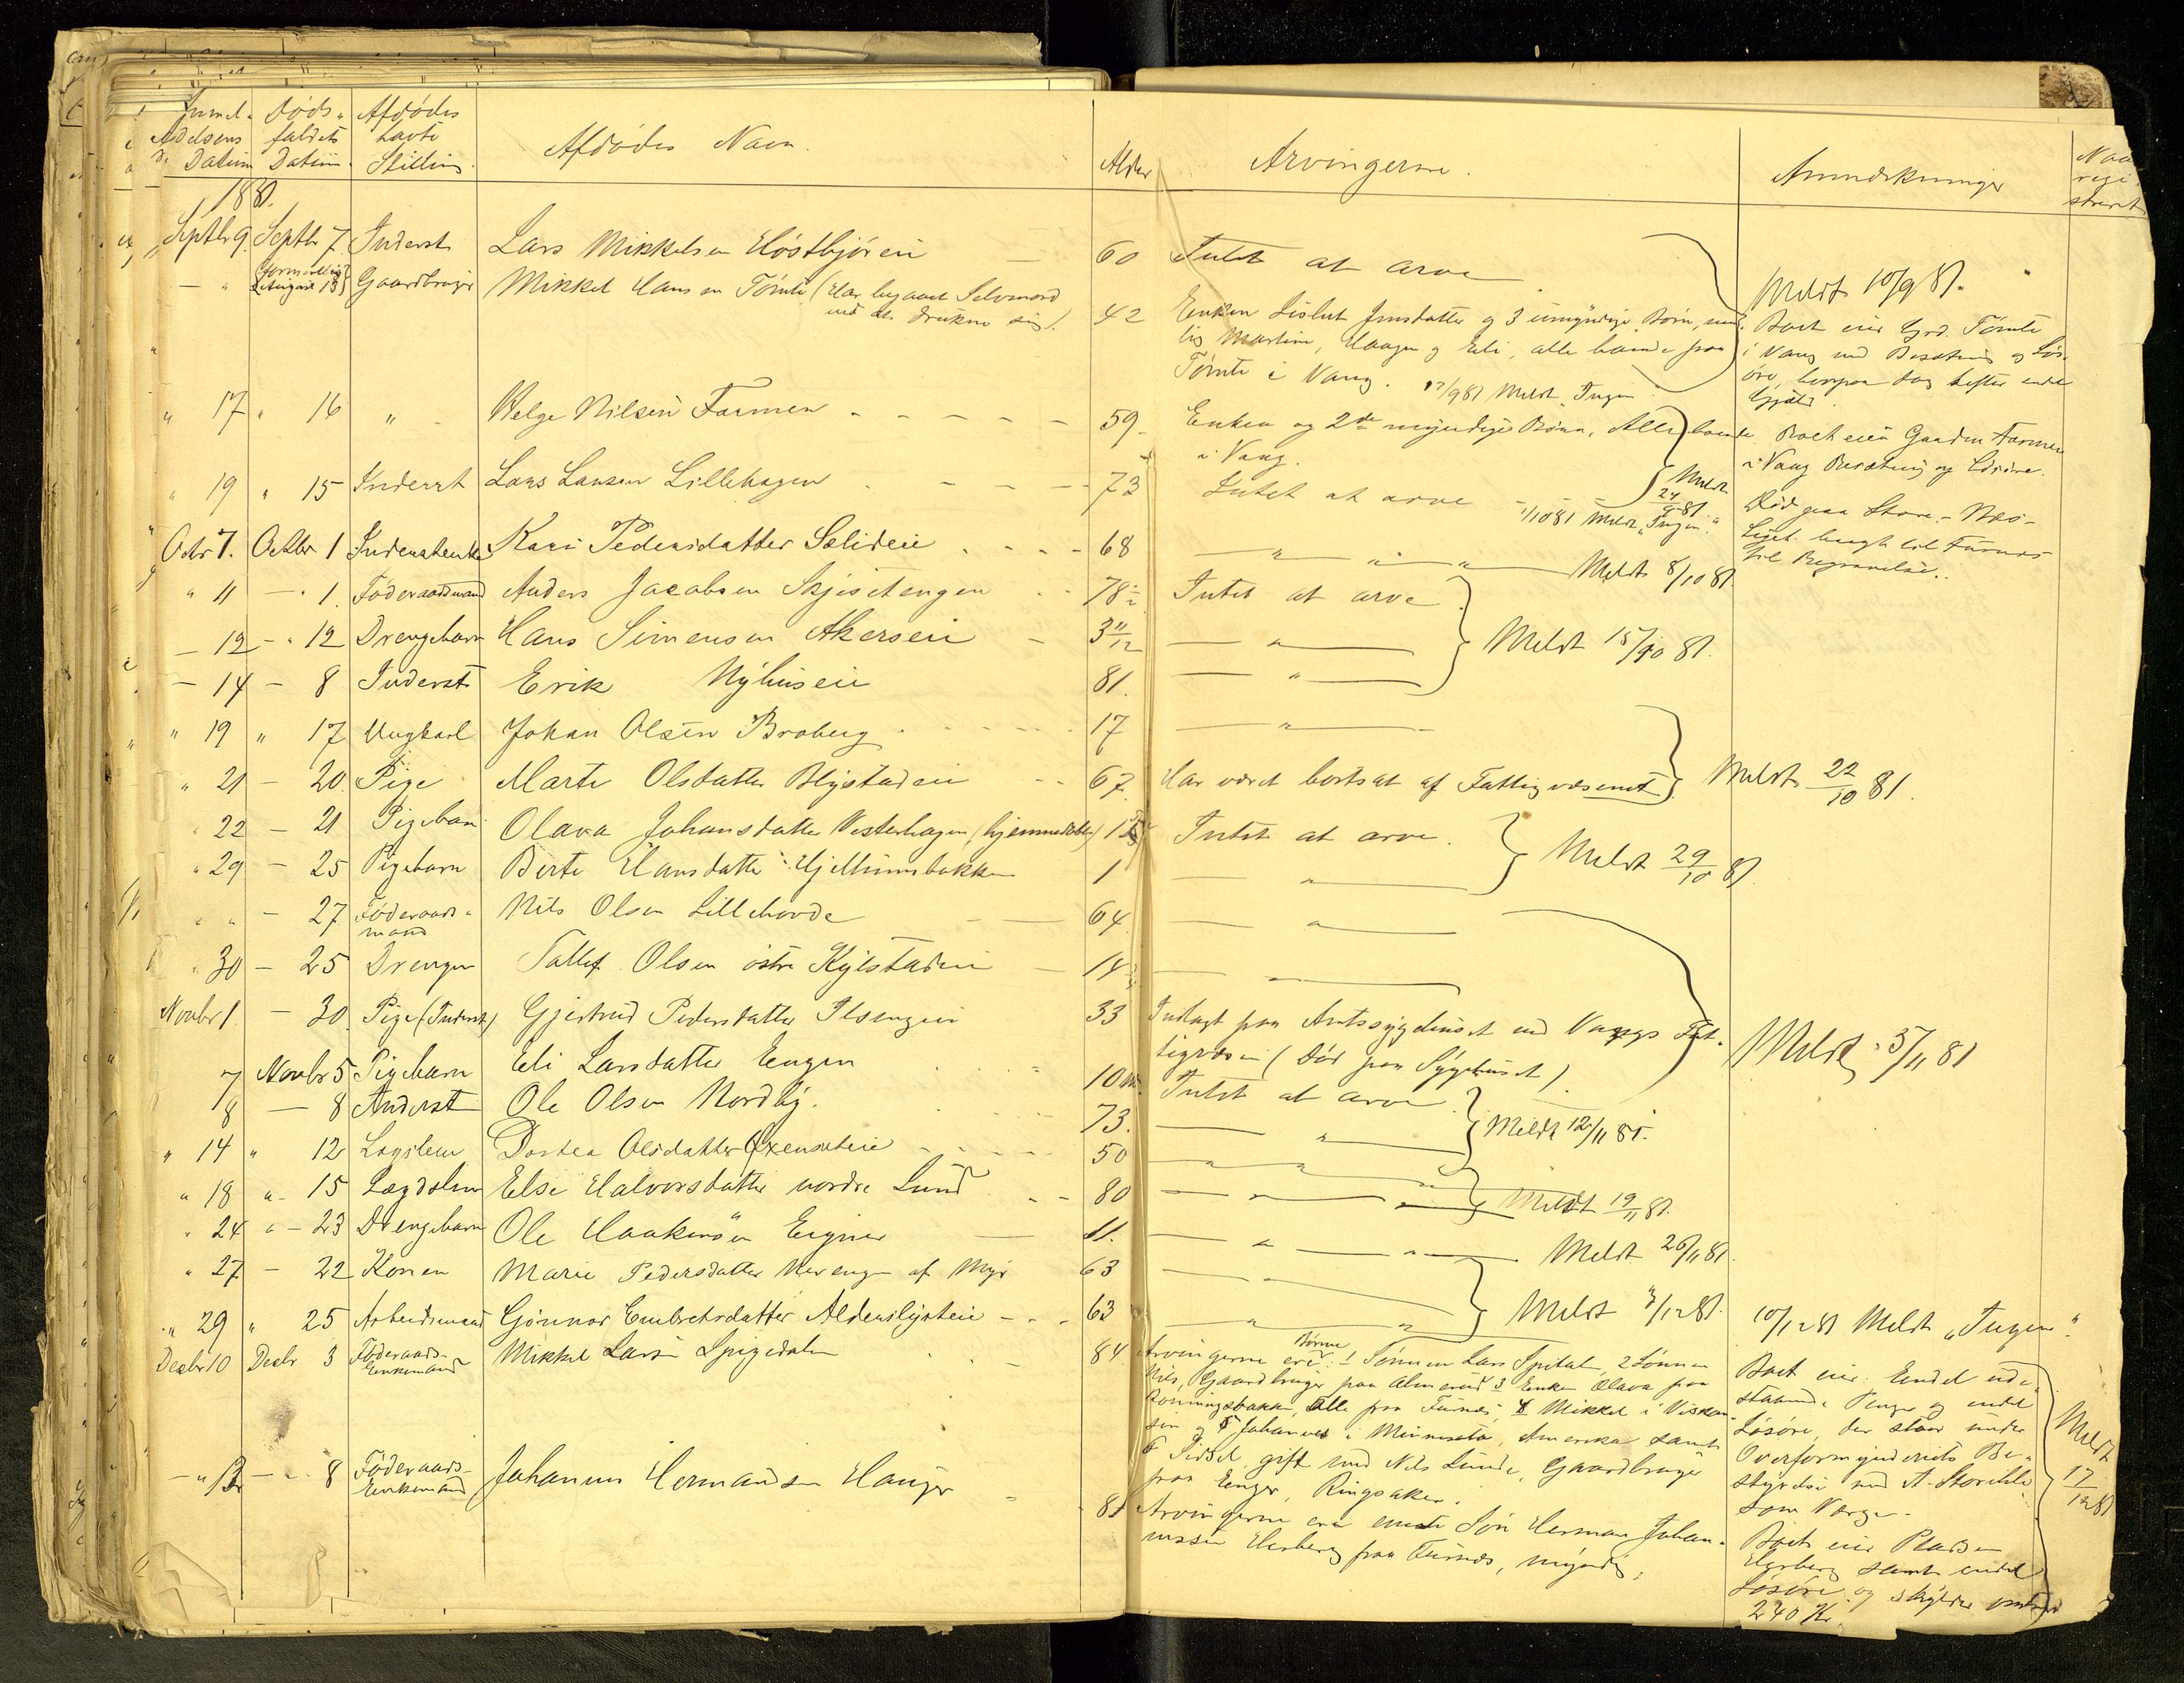 Anmel- Døds- Afdødes
delsens faldets havte Afdødes Navn. Alder Arvingerne. Anmærkninger
Datum Datum Stilling
1881.
Septbr 9. Septbr 7 Inderst Lars Mikkelsen Høstbjøreie 60 Intet at arve Meldt 10/9 81.
August 13 Gaardbruger Mikkel Hansen Tømte (Har begaaet Selvmord
ved at drukne sig). 42 Enken Lisbet Jensdatter og 3 umyndige Børn, nem-
lig Martine, Haagen og Eli, alle boende paa
Tømte i Vang. 17/9 81 Meldt Ingen
Boet eier Grd. Tømte
i Vang med Besætning og Løs-
øre, hvorpaa dog hefter endel
Gjæld.
" 17 " 16 " Helge Nilsen Farmen 59. Enken og 2de myndige Børn. Alle boende
i Vang.
Boet eier Gaarden Farmen
i Vang Besætning og Løsøre.
" 19 " 15 Inderst Lars Larsen Lillehagen 73 Intet at arve
Meldt 24/9 81
1/10 81 Meldt "Ingen"
Død paa Store-Næs-
Liget bragt til Furnes
til Begravelse.
Octbr 7. Octbr 1 Inderstenke Kari Pedersdatter Sælideie 68 " " " Meldt 8/10 81
" 11 - " 1. Føderaadsmand Anders Jacobsen Skjesetengen 78½ Intet at arve
- 12 - " 12 Drengebarn Hans Simensen Akerseie 3 11/12 " Meldt 15/10 81.
- 14 - 8 Inderst Erik Nyhuseie 81. "
" 19 " 17 Ungkarl Johan Olsen Broberg 17 "
" 21 - 20. Pige Marte Olsdatter Blystadeie 67. Har været bortsat af Fattigvæsenet Meldt 22/10 81.
" 22 - 21 Pigebarn Olava Johansdatter Vesterhagen (hjemmedøbt) Intet at arve.
" 29 - 25 Pigebarn Berte Hansdatter Hjellumbakken 1 " Meldt 29/10 81
" " - 27 Føderaads-
mand Nils Olsen Lillehovde 64 "
" 30 - 25 Drengen Tollef Olsen østre Kylstadeie 14 "
Novbr 1 - 30. Pige (Inderst) Gjertrud Pedersdatter Ilsengeie 33 Indlagt paa Amtssygehuset ved Vangs Fat-
tigvæsen (Død paa Sygehuset). Meldt 5/11 81
7 Novbr 5 Pigebarn Eli Larsdatter Engen 10 m. Intet at arve
8 - 8 Inderst Ole Olsen Nordby. 73. " Meldt 12/11 81.
" 14 " 12 Lægslem Dortea Olsdatter Oxenseteie 50 " "
" 18 " - 15 Lægdslem Else Halvorsdatter nordre Lund 80 " Meldt 19/11 81.
" 24 " - 23 Drengebarn Ole Haakensen Eigner 11. " " Meldt 26/11 81.
" 27 - 22 Konen Marie Pedersdatter af Myr 63 "
" 29 " 25 Arbeidsmand Gönnor Embretsdatter 63 " " Meldt 3/12 81.
10/12 81 Meldt "Ingen".
Decbr 10 Decbr 3 Føderaads-
Enkemand Mikkel Larsen Spigedalen 84 Arvingerne ere: Børnene 1 Sønnen Lars Spital, 2 Sønnen
Nils, Gaardbruger paa Almerud 3 Enken Olava paa
Rønningsbakken, Alle paa Furnæs, 4 Mikkel i Viskon-
sin og 5 Johannes i Minnesota, Amerika samt
6 Sidsel gift med Nils Lunde, Gaardbruger
paa Enger, Ringsaker.
Boet eier: Endel ude-
staaende Penge og endel
Løsøre, der staar under
Overformynderiets Be-
styrelse med A. Storihle
som Værge.
- " 12 - " 8 Føderaads-
Enkemand Johannes Hermandsen Hauger 81 Arvingerne ere eneste Søn Herman Johan-
nessen Elsberg paa Furnæs, myndig.
Boet eier Pladsen
Elsberg samt endel
Løsøre og skylder omtrent
240 Kr.
Meldt 17/12 81